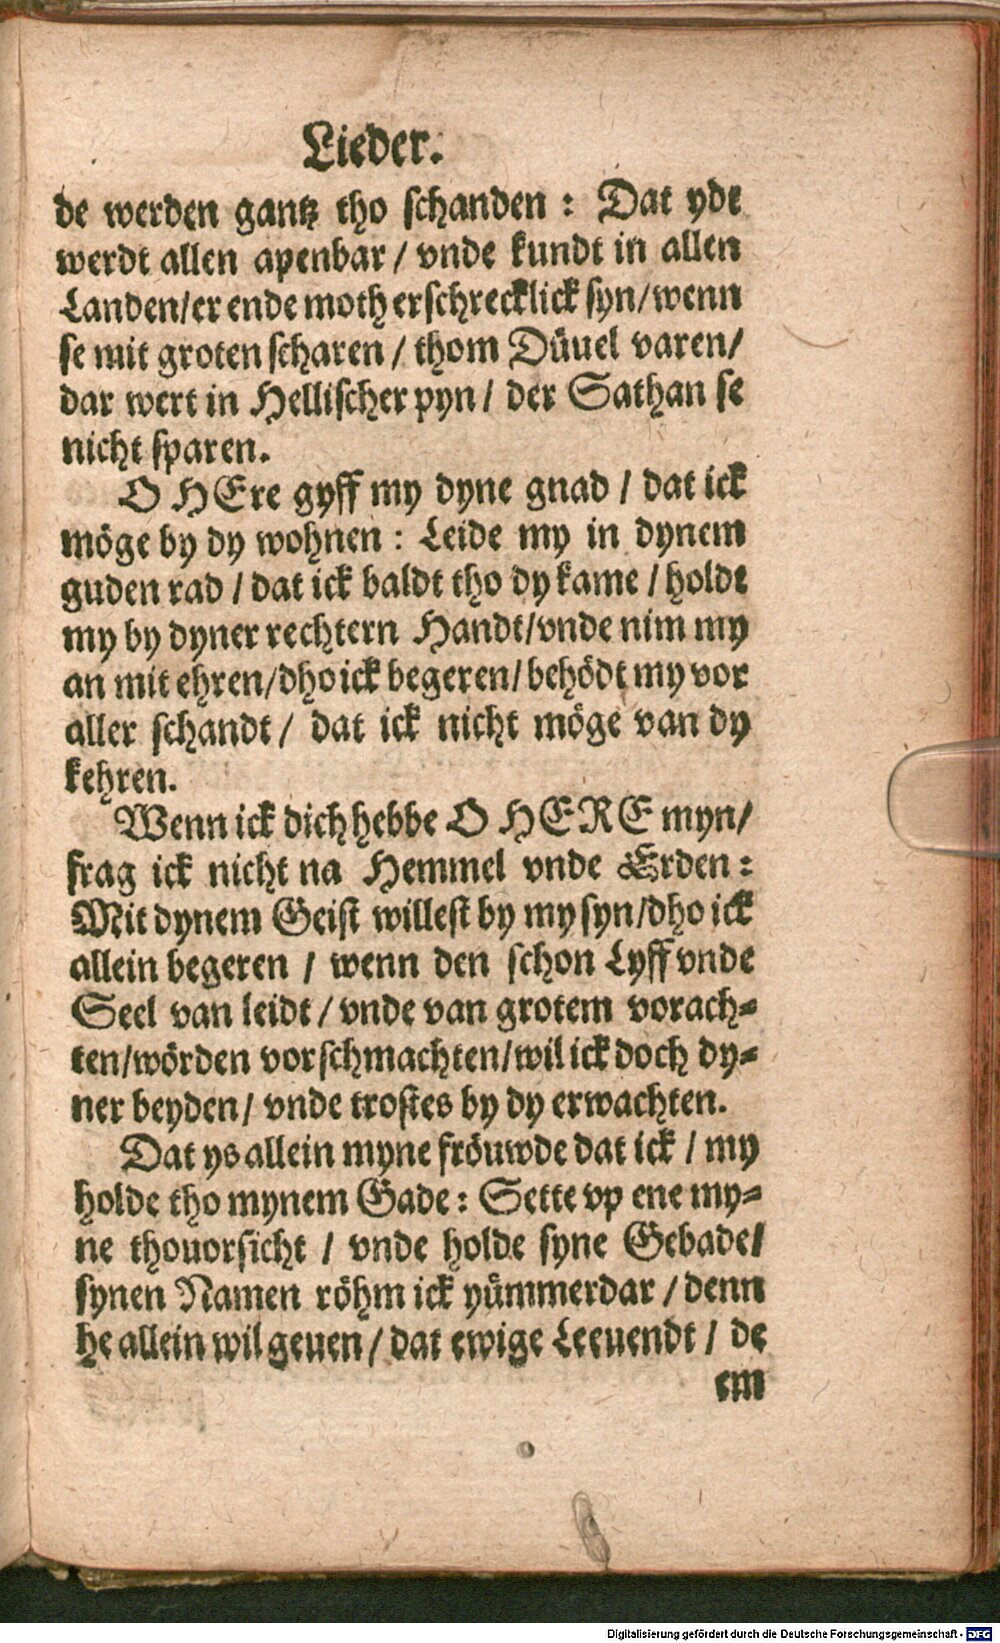 Lieder.
de werden gantz tho schanden : Dat ydt
werdt allen apenbar / vnde kundt in allen
Landen/er ende moth erschrecklick syn/wenn
se mit groten scharen / thom Düuel varen/
dar wert in Hellischer pyn / der Sathan se
nicht sparen.
O HEre gyff my dyne gnad / dat ick
möge by dy wohnen : Leide my in dynem
guden rad / dat ick baldt tho dy kame / holdt
my by dyner rechtern Handt/vnde nim my
an mit ehren/dho ick begeren/behödt my vor
aller schandt / dat ick nicht möge van dy
kehren.
Wenn ick dich hebbe O HERE myn/
frag ick nicht na Hemmel vnde Erden :
Mit dynem Geist willest by my syn/dho ick
allein begeren / wenn den schon Lyff vnde
Seel van leidt / vnde van grotem vorach-
ten/wörden vorschmachten/wil ick doch dy-
ner beyden/ vnde trostes by dy erwachten.
Dat ys allein myne fröuwde dat ick / my
holde tho mynem Gade : Sette vp ene my-
ne thouorsicht / vnde holde syne Gebade/
synen Namen röhm ick yümmerdar / denn
he allein wil geuen / dat ewige Leeuendt / de
em
Digitalisierung gefördert durch die Deutsche Forschungsgemeinschaft - DFG